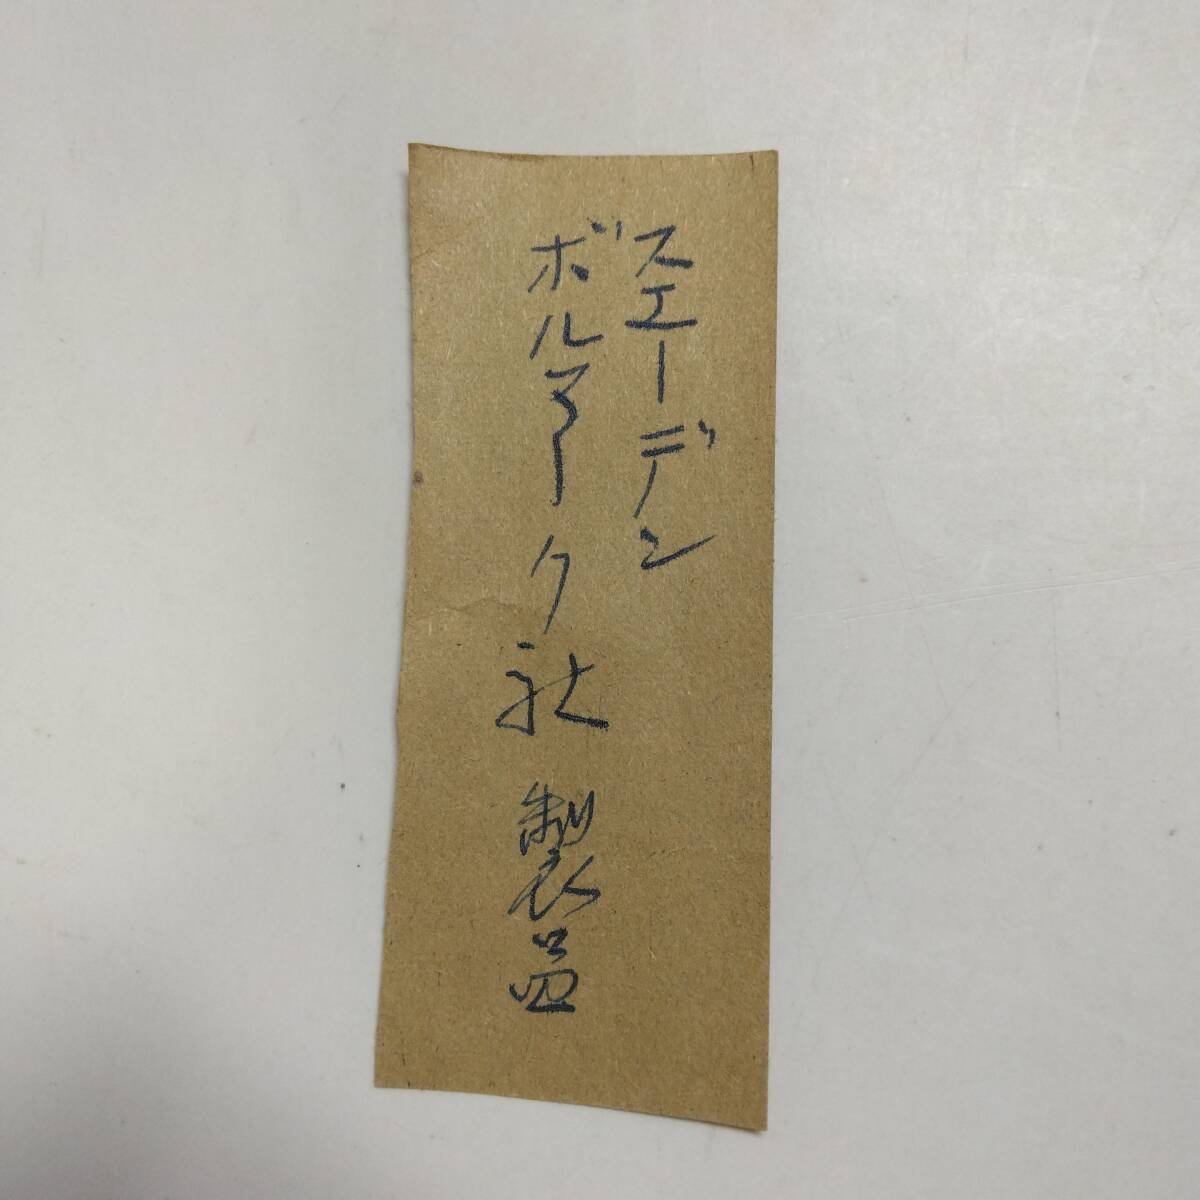 スエーデン
ボルマーク社製品